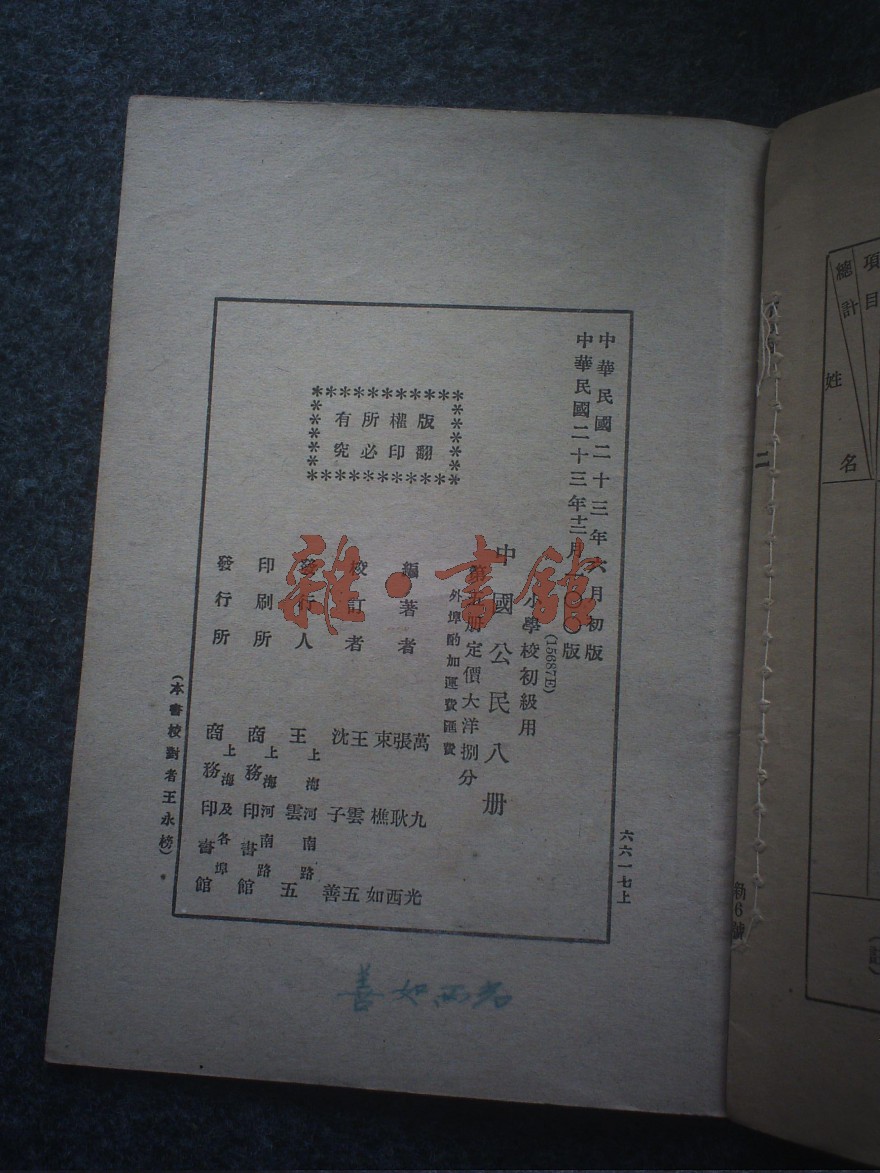 中華民國二十三年六月初版
中華民國二十三年十二月一〇〇版
小學校初級用
(15687E)
中國公民八册
第 册定價大洋捌分
外埠酌加運費匯費
版權所有
翻印必究
編著者
萬九光
張耿西
束樵如
校訂者
王雲五
沈子善
發行人
王雲五
上海河南路
印刷所
上海河南路
商務印書館
發行所
上海及各埠
商務印書館
(本書校對者王永榜)
六六一七上
善如西光
雜·書館
二
項目
總計
姓名